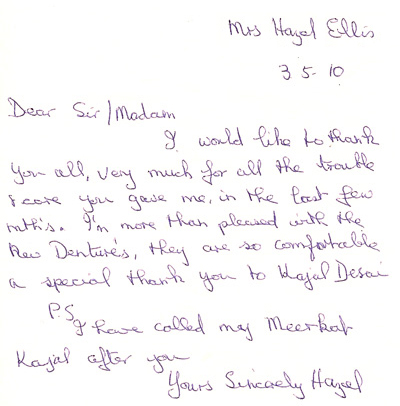 Mrs Hazel Ellis
3 5- 10
Dear Sir/Madam
I would like to thank
you all, very much for all the trouble
& care you gave me, in the last few
mths. I'm more than pleased with the
New Denture's, they are so comfortable
a special thank you to Kajal Desai
P.S.
I have called my Meerkat
Kajal after you
Yours Sincerely Hazel